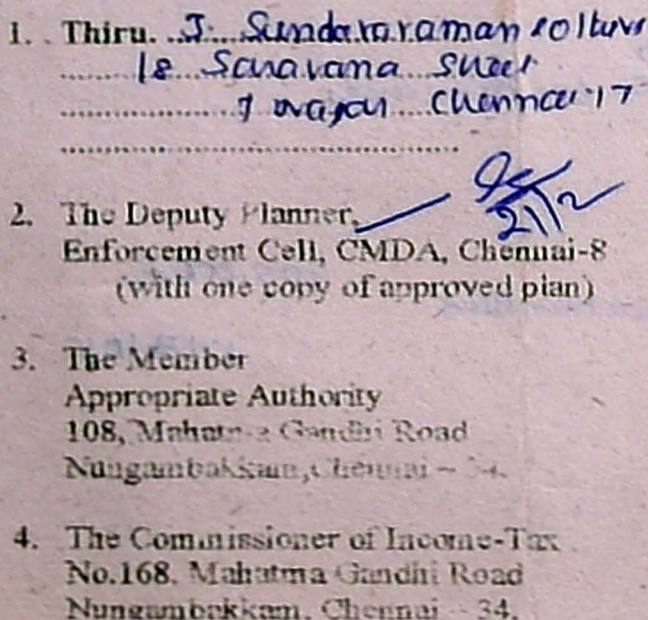 1. Thiru. J. Sundararaman
18 Saravana Street
T Nagar Chennai 17
2. The Deputy Planner,
21/2
Enforcement Cell, CMDA, Chennai-8
(with one copy of approved plan)
3. The Member
Appropriate Authority
108, Mahatma Gandhi Road
Nungambakkam, Chennai - 34.
4. The Commissioner of Income-Tax
No.168, Mahatma Gandhi Road
Nungambakkam, Chennai - 34.